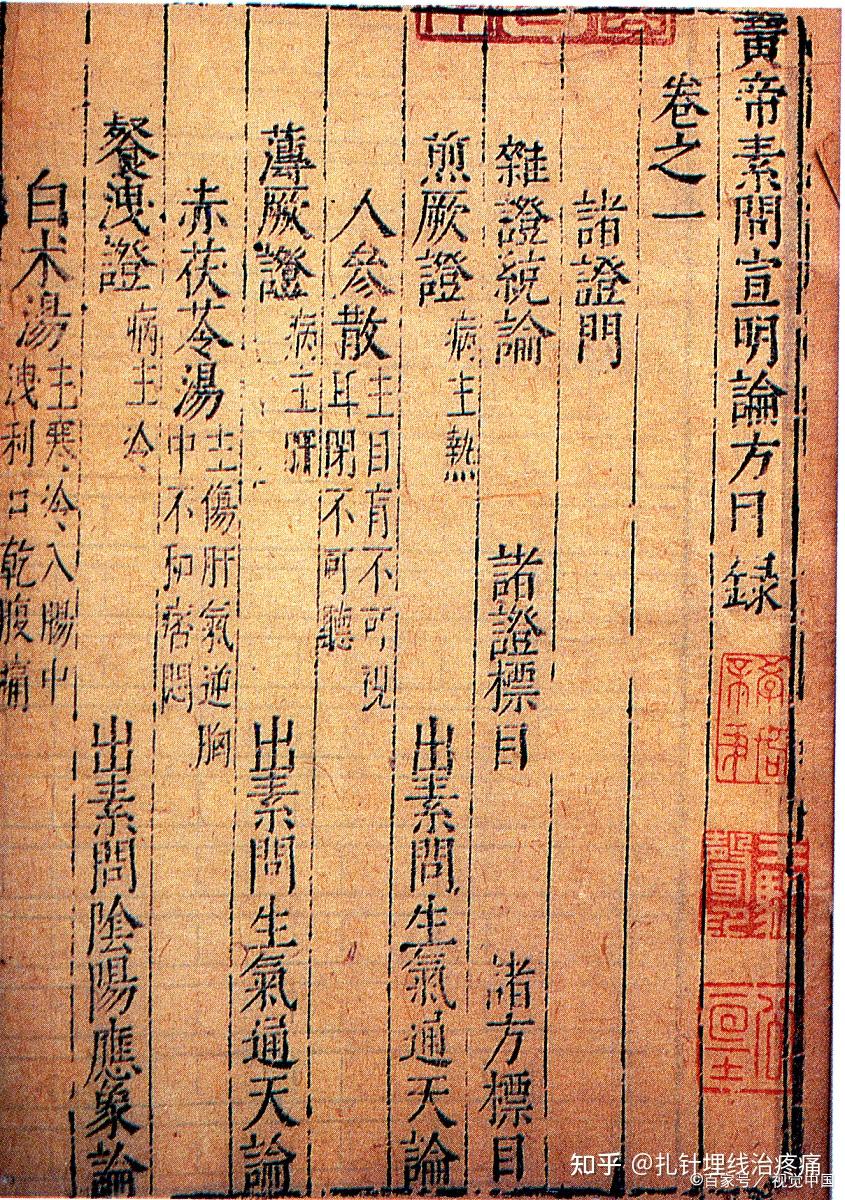 黃帝素問宣明論方目録
卷之一
諸證門
雜證統論 諸證標目 諸方標目
煎厥證 病主熱 出素問生氣通天論
人參散 主目盲不可視
耳閉不可聽
薄厥證 病主肝 出素問生氣通天論
赤茯苓湯 主傷肝氣逆胸
中不和痞悶
飱洩證 病主冷 出素問陰陽應象論
白术湯 主寒冷入腸中
洩利口乾腹痛
知乎 @扎针埋线治疼痛
©百家号/视觉中国